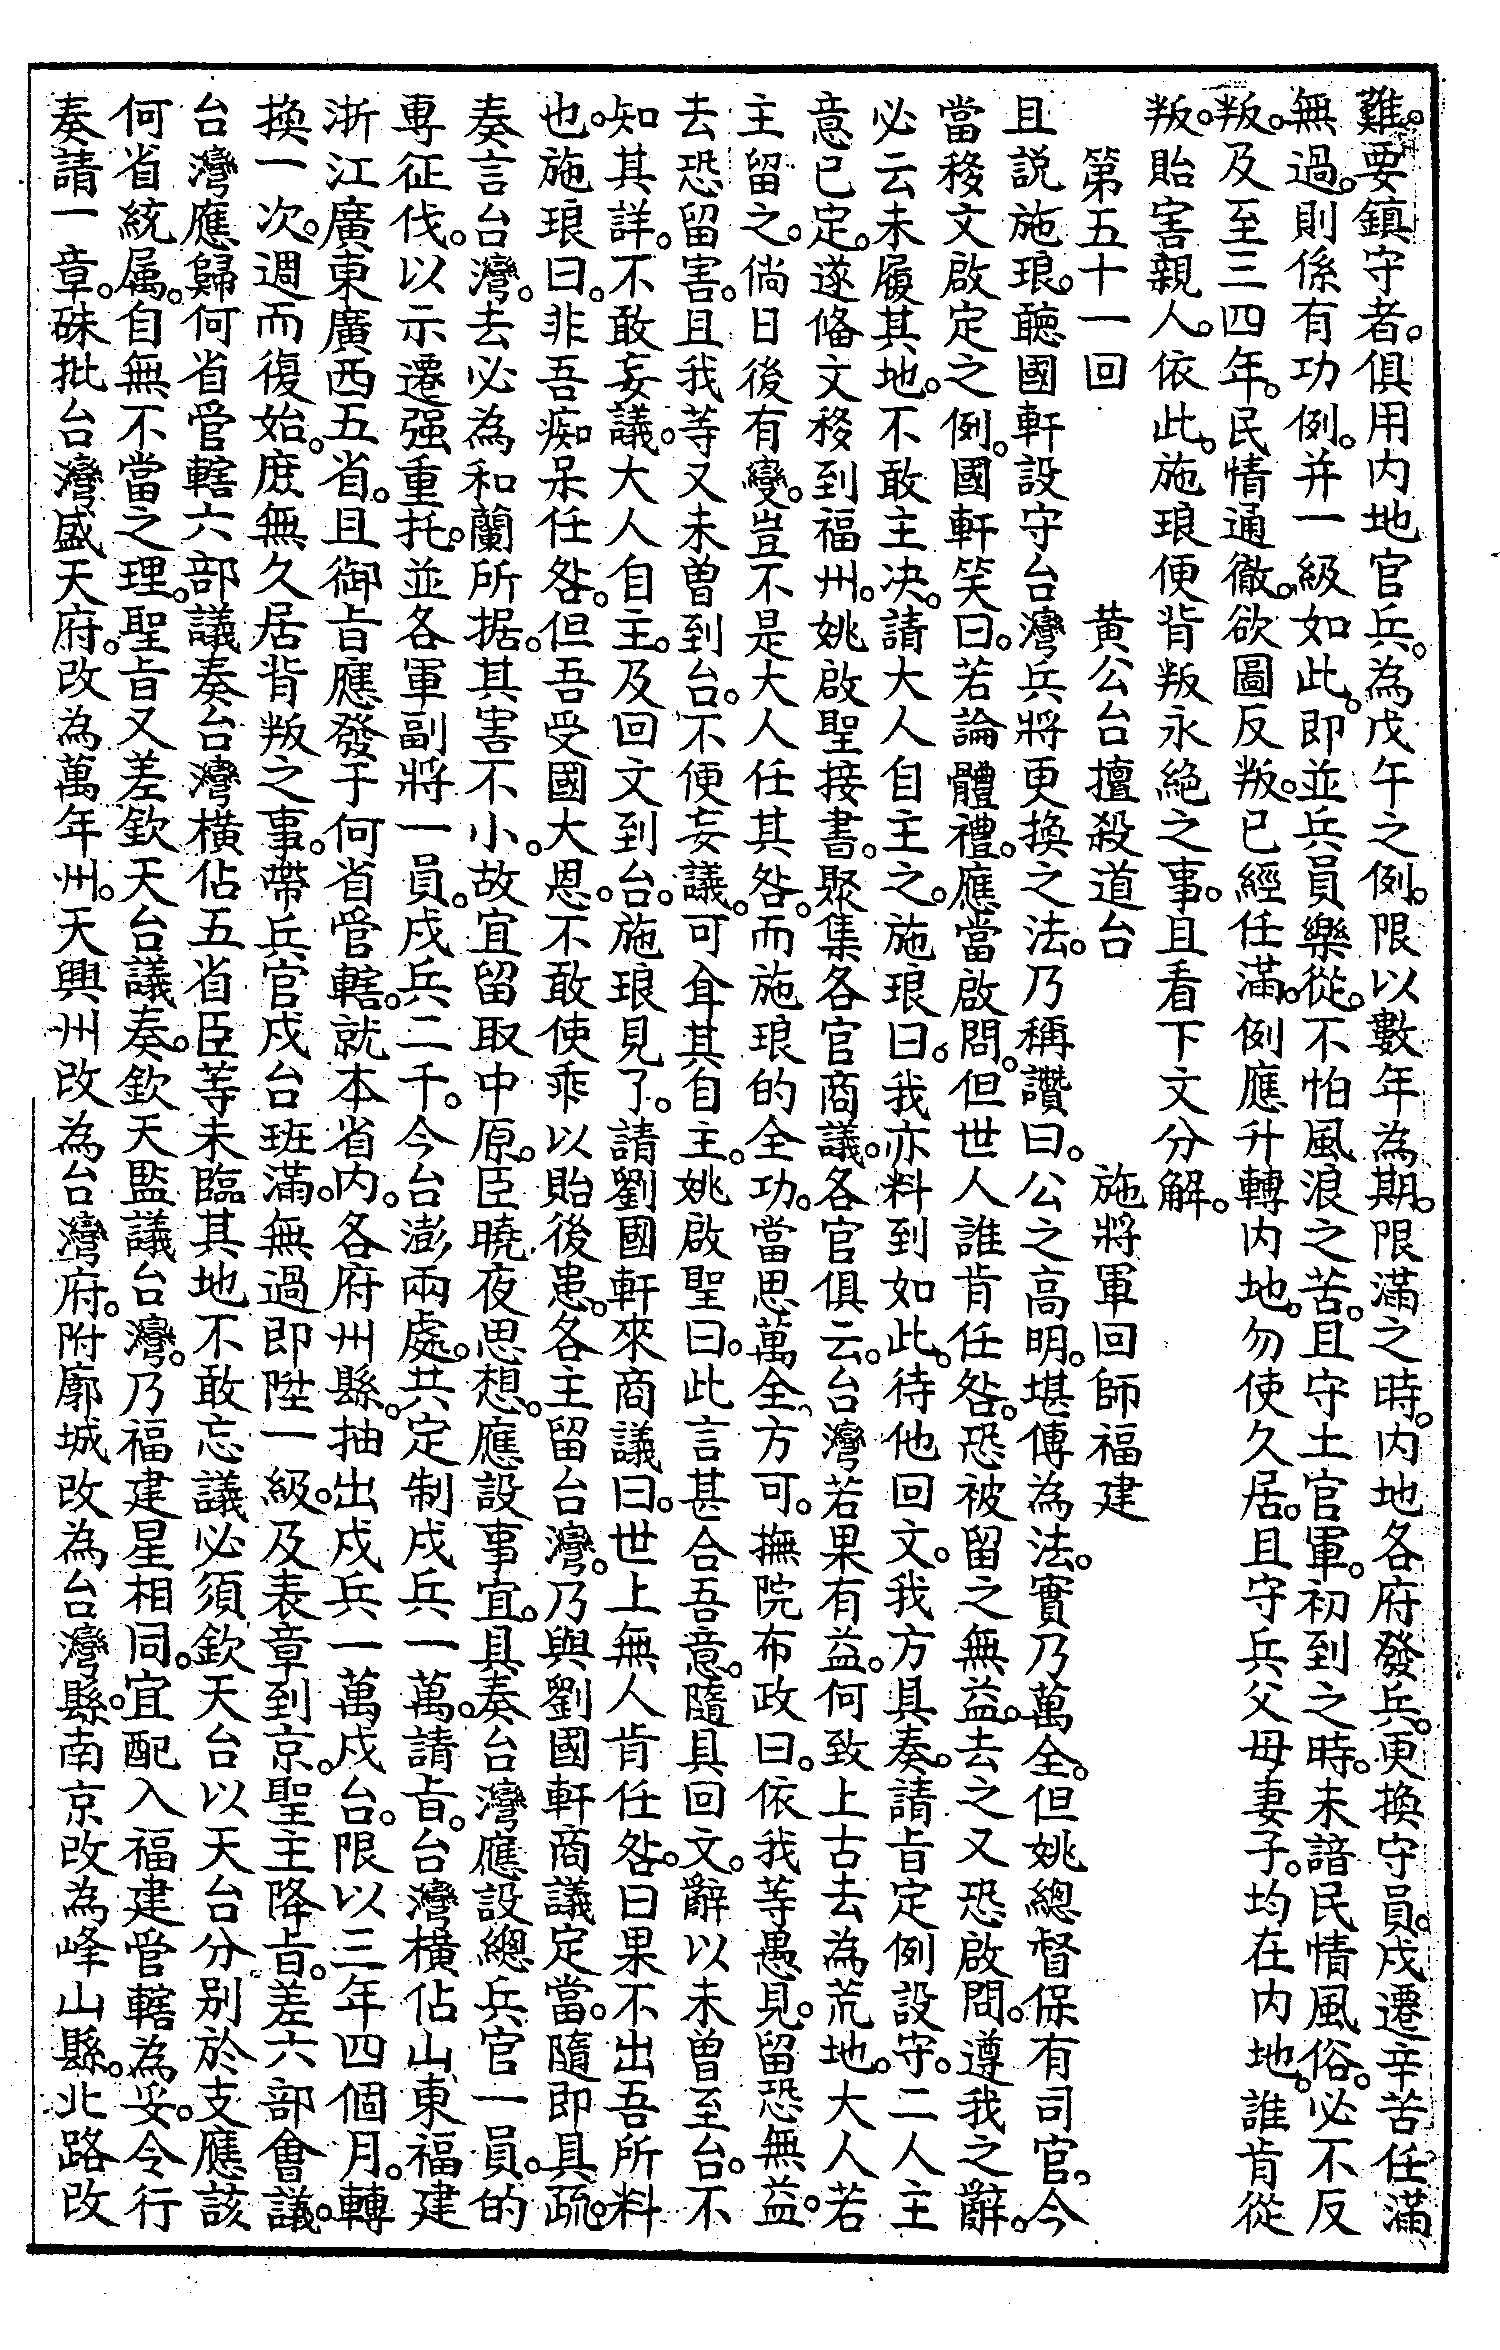 難。要鎮守者。俱用内地官兵。為戊午之例。限以數年為期。限滿之時。内地各府發兵。更換守員。戍遷辛苦任滿
無過。則係有功例。并一級如此。即並兵員樂從。不怕風浪之苦。且守土官軍。初到之時。未諳民情風俗。必不反
叛。及至三四年。民情通徹。欲圖反叛。已經任滿。例應升轉内地。勿使久居。且守兵父母妻子。均在内地。誰肯從
叛。貽害親人。依此。施琅便背叛永絕之事。且看下文分解。
第五十一回　黄公台擅殺道台　施將軍回師福建
且説施琅。聽國軒設守台灣兵將更換之法。乃稱讚曰。公之高明。堪傳為法。實乃萬全。但姚總督保有司官。今
當移文啟定之例。國軒笑曰。若論體禮。應當啟問。但世人誰肯任咎。恐被留之無益。去之又恐啟問。遵我之辭。
必云未履其地。不敢主决。請大人自主之。施琅曰。我亦料到如此。待他回文。我方具奏。請旨定例設守。二人主
意已定。遂俻文移到福州。姚啟聖接書。聚集各官商議。各官俱云。台灣若果有益。何致上古去為荒地。大人若
主留之。倘日後有變。豈不是大人任其咎。而施琅的全功。當思萬全方可。撫院布政曰。依我等愚見。留恐無益。
去恐留害。且我等又未曽到台。不便妄議。可耸其自主。姚啟聖曰。此言甚合吾意。隨具回文。辭以未曽至台。不
知其詳。不敢妄議。大人自主。及回文到台。施琅見了。請劉國軒來商議曰。世上無人肯任咎。曰果不出吾所料
也。施琅曰。非吾痴呆任咎。但吾受國大恩。不敢使乖以貽後患。各主留台灣。乃與劉國軒商議定當。隨即具疏。
奏言台灣。去必為和蘭所据。其害不小。故宜留取中原。臣曉夜思想。應設事宜。具奏台灣應設總兵官一員。的
專征伐。以示遷强重托。並各軍副將一員。戍兵二千。今台澎兩處。共定制戍兵一萬。請旨。台灣橫佔山東福建
浙江廣東廣西五省。且御旨應發于何省管轄。就本省内。各府州縣。抽出戍兵一萬戍台。限以三年四個月。轉
換一次。週而復始。庶無久居背叛之事。帶兵官戍台班滿。無過即陞一級。及表章到京。聖主降旨。差六部會議。
台灣應歸何省管轄六部議奏台灣橫佔五省臣等未臨其地不敢忘議必須欽天台以天台分別於支應該
何省統属。自無不當之理。聖旨又差欽天台議奏。欽天監議台灣。乃福建星相同。宜配入福建管轄為妥。令行
奏請一章。硃批台灣盛天府。改為萬年州。天興州改為台灣府。附廓城改為台灣縣。南京改為峰山縣。北路改